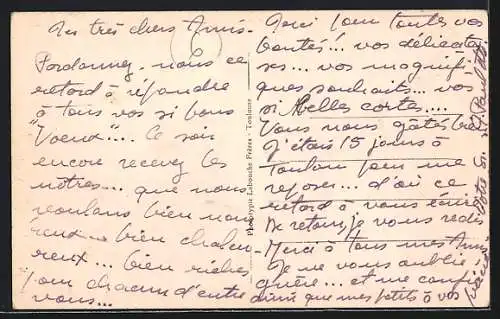 Mes très chers Amis.
Pardonnez-nous ce
retard à répondre
à tous vos si bons
"Voeux"... Ce soir
encore recevez les
nôtres... que nous
voulons bien nom-
breux... bien chaleu-
reux... bien riches,
pour chacun d'entre
vous...
Phototypie Labouche Frères - Toulouse
Merci pour toutes vos
bontés!... vos délicates-
ses... vos magnifi-
ques souhaits... vos
si belles cartes....
Vous nous gâtés bien
J'étais 15 jours à
Toulon pour me
reposer... d'où ce
retard à vous écrire
De retour, je vous redis
Merci à tous mes Amis
Je ne vous oublie
guère... et me confie
ainsi que mes petits à vos